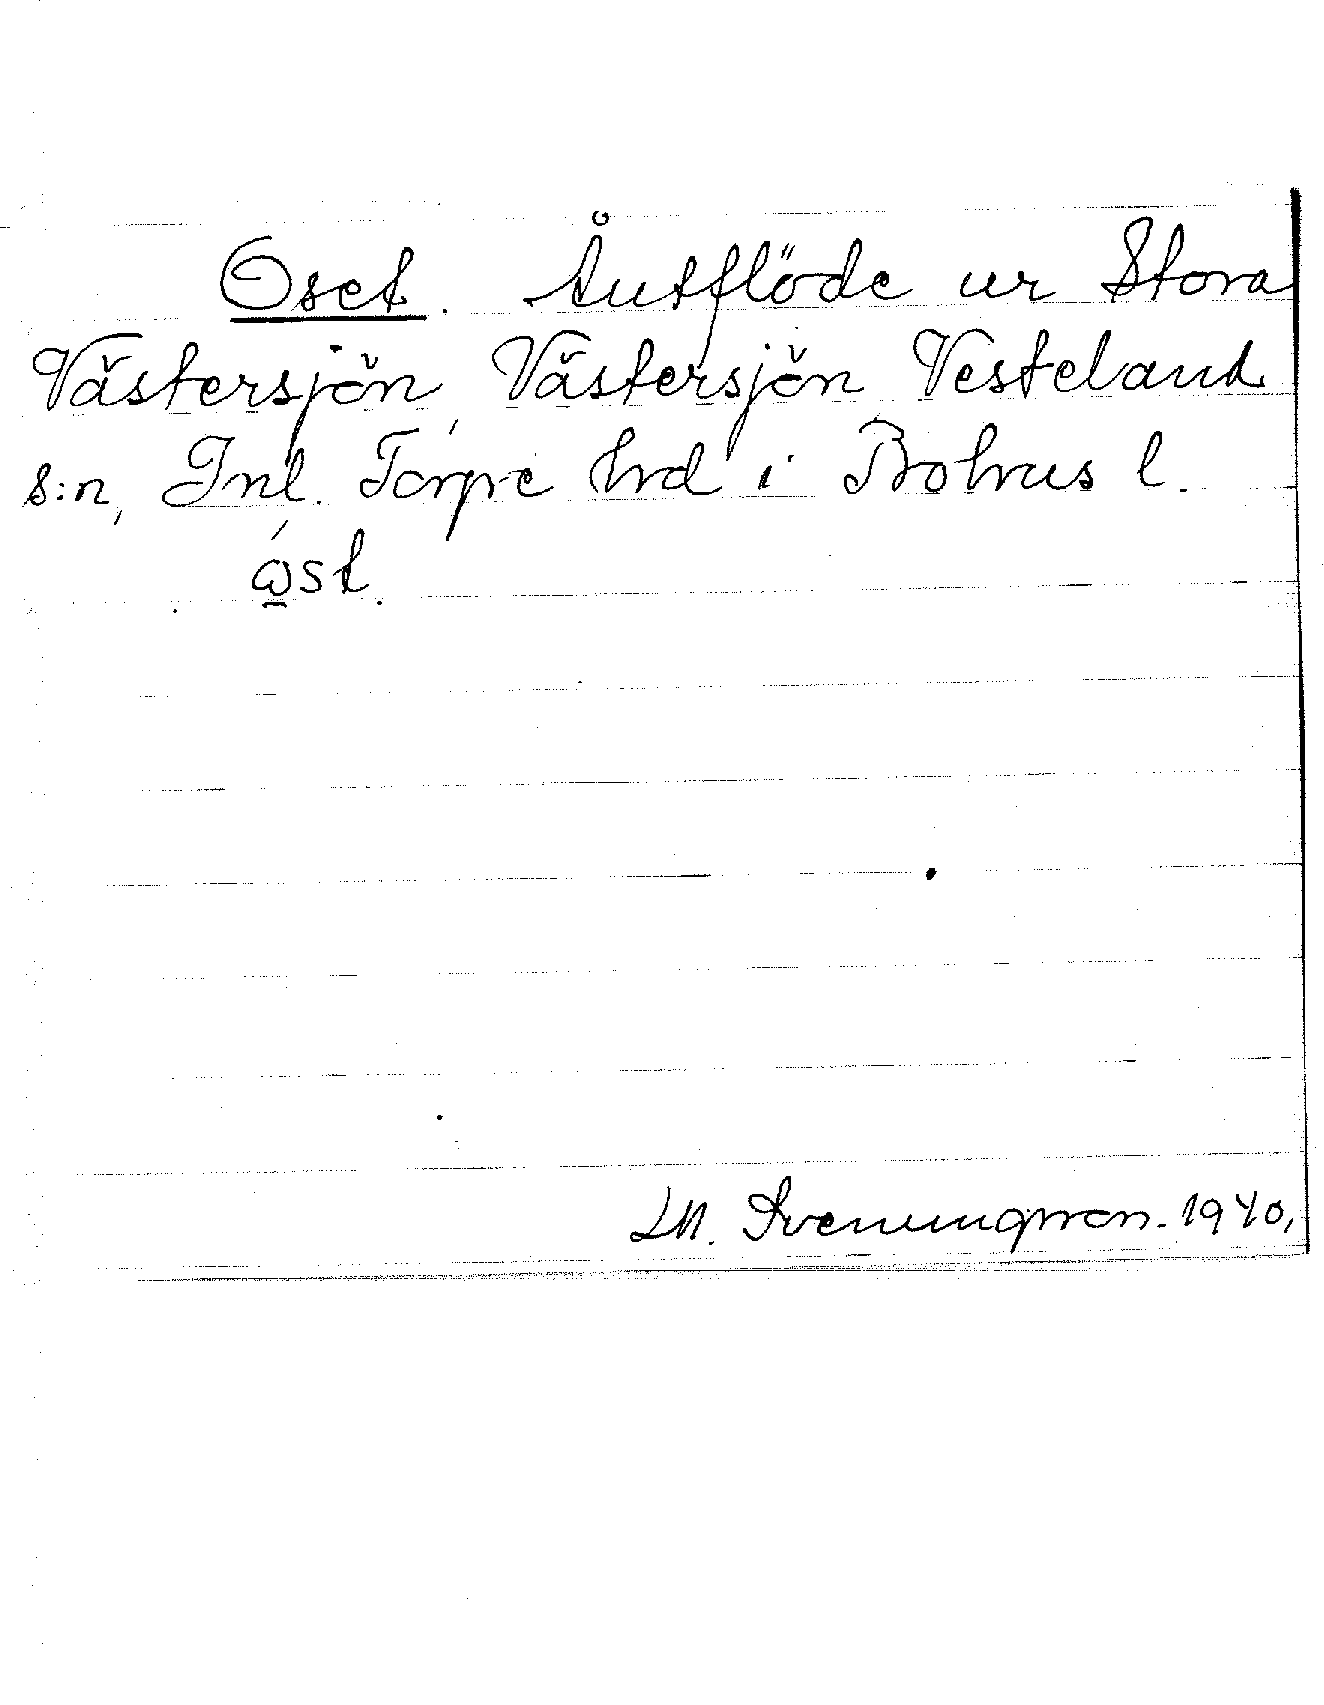 Oset. Åutflöde ur Stora
Västersjön, Västersjön Vesteland
s:n, Inl. Torpe hrd i Bohus l.
ώ̱st.
M. Svenungsson. 1940,